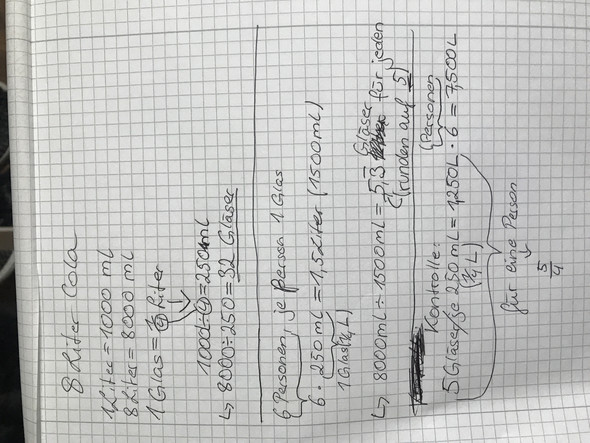 8 Liter Cola
1 Liter = 1000 ml
8 Liter = 8000 ml
1 Glas = 1/4 Liter
1000 ÷ 4 = 250 ml
↳ 8000 ÷ 250 = 32 Gläser
6 Personen, je Person 1 Glas
6 · 250 mL = 1,5 Liter (1500 mL)
1 Glas (1/4 L)
↳ 8000 mL ÷ 1500 mL = 5,3 Gläser für jeden
(runden auf 5)
Kontrolle: (Personen
5 Gläser je 250 mL = 1,250 L · 6 = 7,500 L
(1/4 L)
für eine Person
5/4